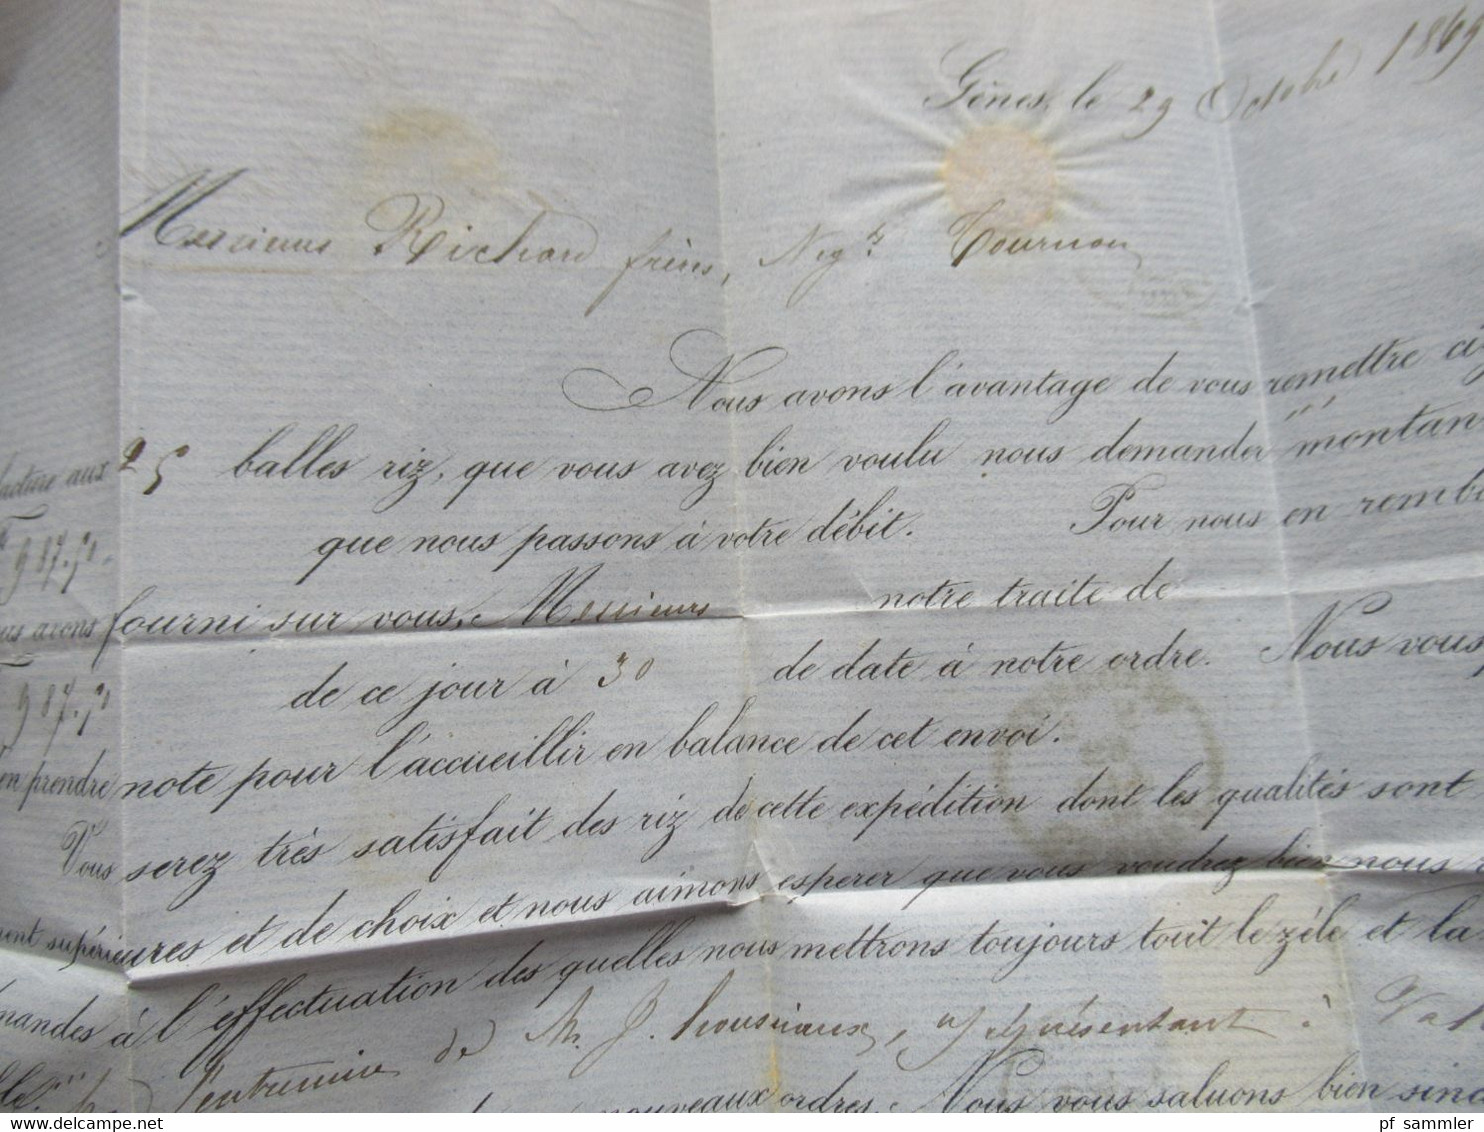 Gênes, le 29 Octobre 1869
Messieurs Richard frères, Negts Tournon
Nous avons l'avantage de vous remettre ci
facture aux 25 balles riz, que vous avez bien voulu nous demander montan
987.50 que nous passons à votre débit. Pour nous en remb
avons fourni sur vous, Messieurs notre traite de
987.50 de ce jour à 30 de date à notre ordre. Nous vous
en prendre note pour l'accueillir en balance de cet envoi.
Vous serez très satisfait des riz de cette expédition dont les qualités sont
ment supérieures et de choix et nous aimons esperer que vous voudrez bien nous
mandes à l'éffectuation des quelles nous mettrons toujours tout le zéle et la
l'entremise de M. J. représentant à Val
nouveaux ordres. Nous vous saluons bien sinc
pf sammler